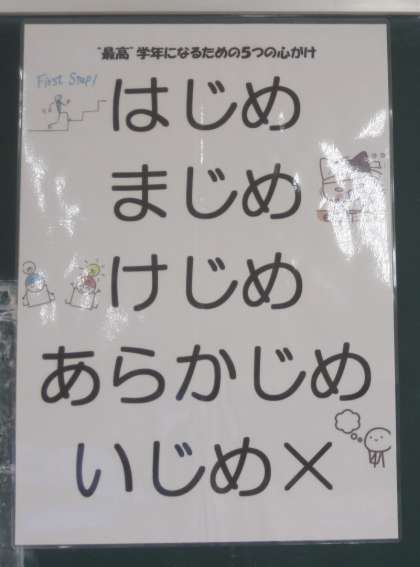 "最高"学年になるための5つの心がけ
First Step!
はじめ
まじめ
けじめ
あらかじめ
いじめ×